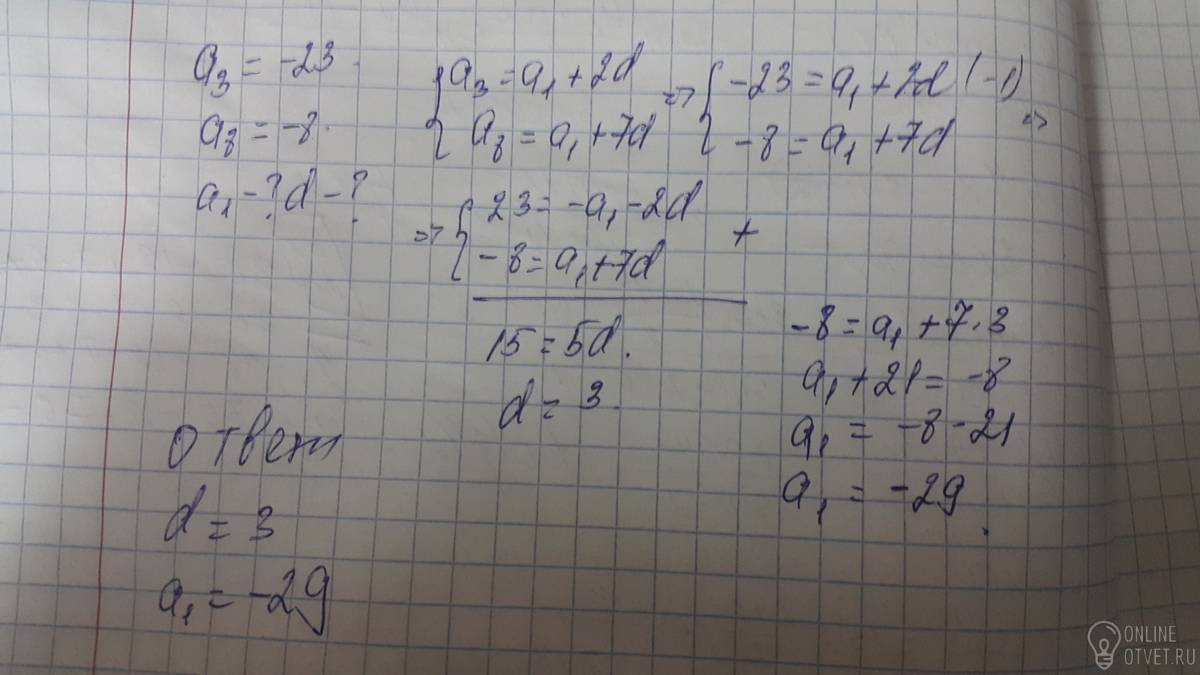 a₃ = -23.
a₈ = -8.
a₁ - ? d - ?
{ a₃ = a₁ + 2d
a₈ = a₁ + 7d
=> { -23 = a₁ + 2d | (-1)
-8 = a₁ + 7d =>
=> { 23 = -a₁ - 2d
-8 = a₁ + 7d +
15 = 5d.
d = 3.
-8 = a₁ + 7·3
a₁ + 21 = -8
a₁ = -8 - 21
a₁ = -29.
ответ
d = 3
a₁ = -29
ONLINE
OTVET.RU